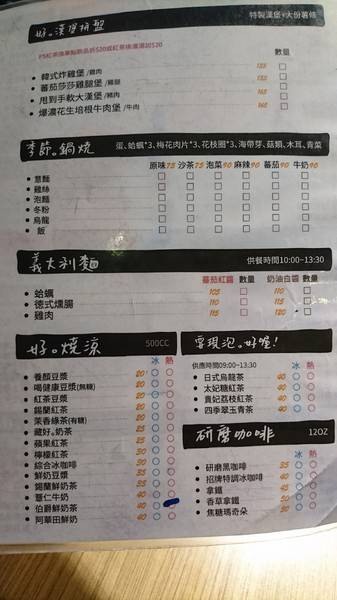 好。漢堡拼盤 特製漢堡+大份薯條
數量
韓式炸雞堡/雞肉 135 □
蕃茄莎莎雞腿堡/雞腿 155 □
甩到手軟大漢堡/豬肉 165 □
爆濃花生培根牛肉堡/牛肉 165 □
季節。鍋燒 蛋、蛤蠣*3、梅花肉片*3、花枝圈*3、海帶芽、菇類、木耳、青菜
原味75 沙茶75 泡菜90 麻辣90 蕃茄90 牛奶90
意麵 □ □ □ □ □ □
雞絲 □ □ □ □ □ □
泡麵 □ □ □ □ □ □
冬粉 □ □ □ □ □ □
烏龍 □ □ □ □ □ □
飯 □ □ □ □ □ □
義大利麵 供餐時間10:00~13:30
蕃茄紅醬 數量 奶油白醬 數量
蛤蠣 105 □ 110 □
德式燻腸 110 □ 115 □
雞肉 115 □ 120 □
好。燒涼 500CC
冰 熱
養顏豆漿 20 ○ ○
喝健康豆漿(無糖) 20 ○ ○
紅茶豆漿 20 ○ ○
錫蘭紅茶 20 ○ ○
茉香綠茶(有糖) 20 ○ ○
藏好。奶茶 25 ○ ○
蘋果紅茶 25 ○ ○
檸檬紅茶 30 ○ ○
綜合冰咖啡 30 ○
鮮奶豆漿 35 ○ ○
錫蘭鮮奶茶 35 ○ ○
薏仁牛奶 40 ○ ○
伯爵鮮奶茶 40 ○
阿華田鮮奶 40 ○ ○
單現泡。好喔!
供應時間09:00~13:30 冰 熱
日式烏龍茶 40 ○ ○
太妃糖紅茶 40 ○ ○
貴妃荔枝紅茶 40 ○ ○
四季翠玉青茶 40 ○ ○
研磨咖啡 12OZ
冰 熱
研磨黑咖啡 35 ○ ○
招牌特調冰咖啡 40 ○
拿鐵 45 ○ ○
香草拿鐵 50 ○ ○
焦糖瑪奇朵 50 ○ ○